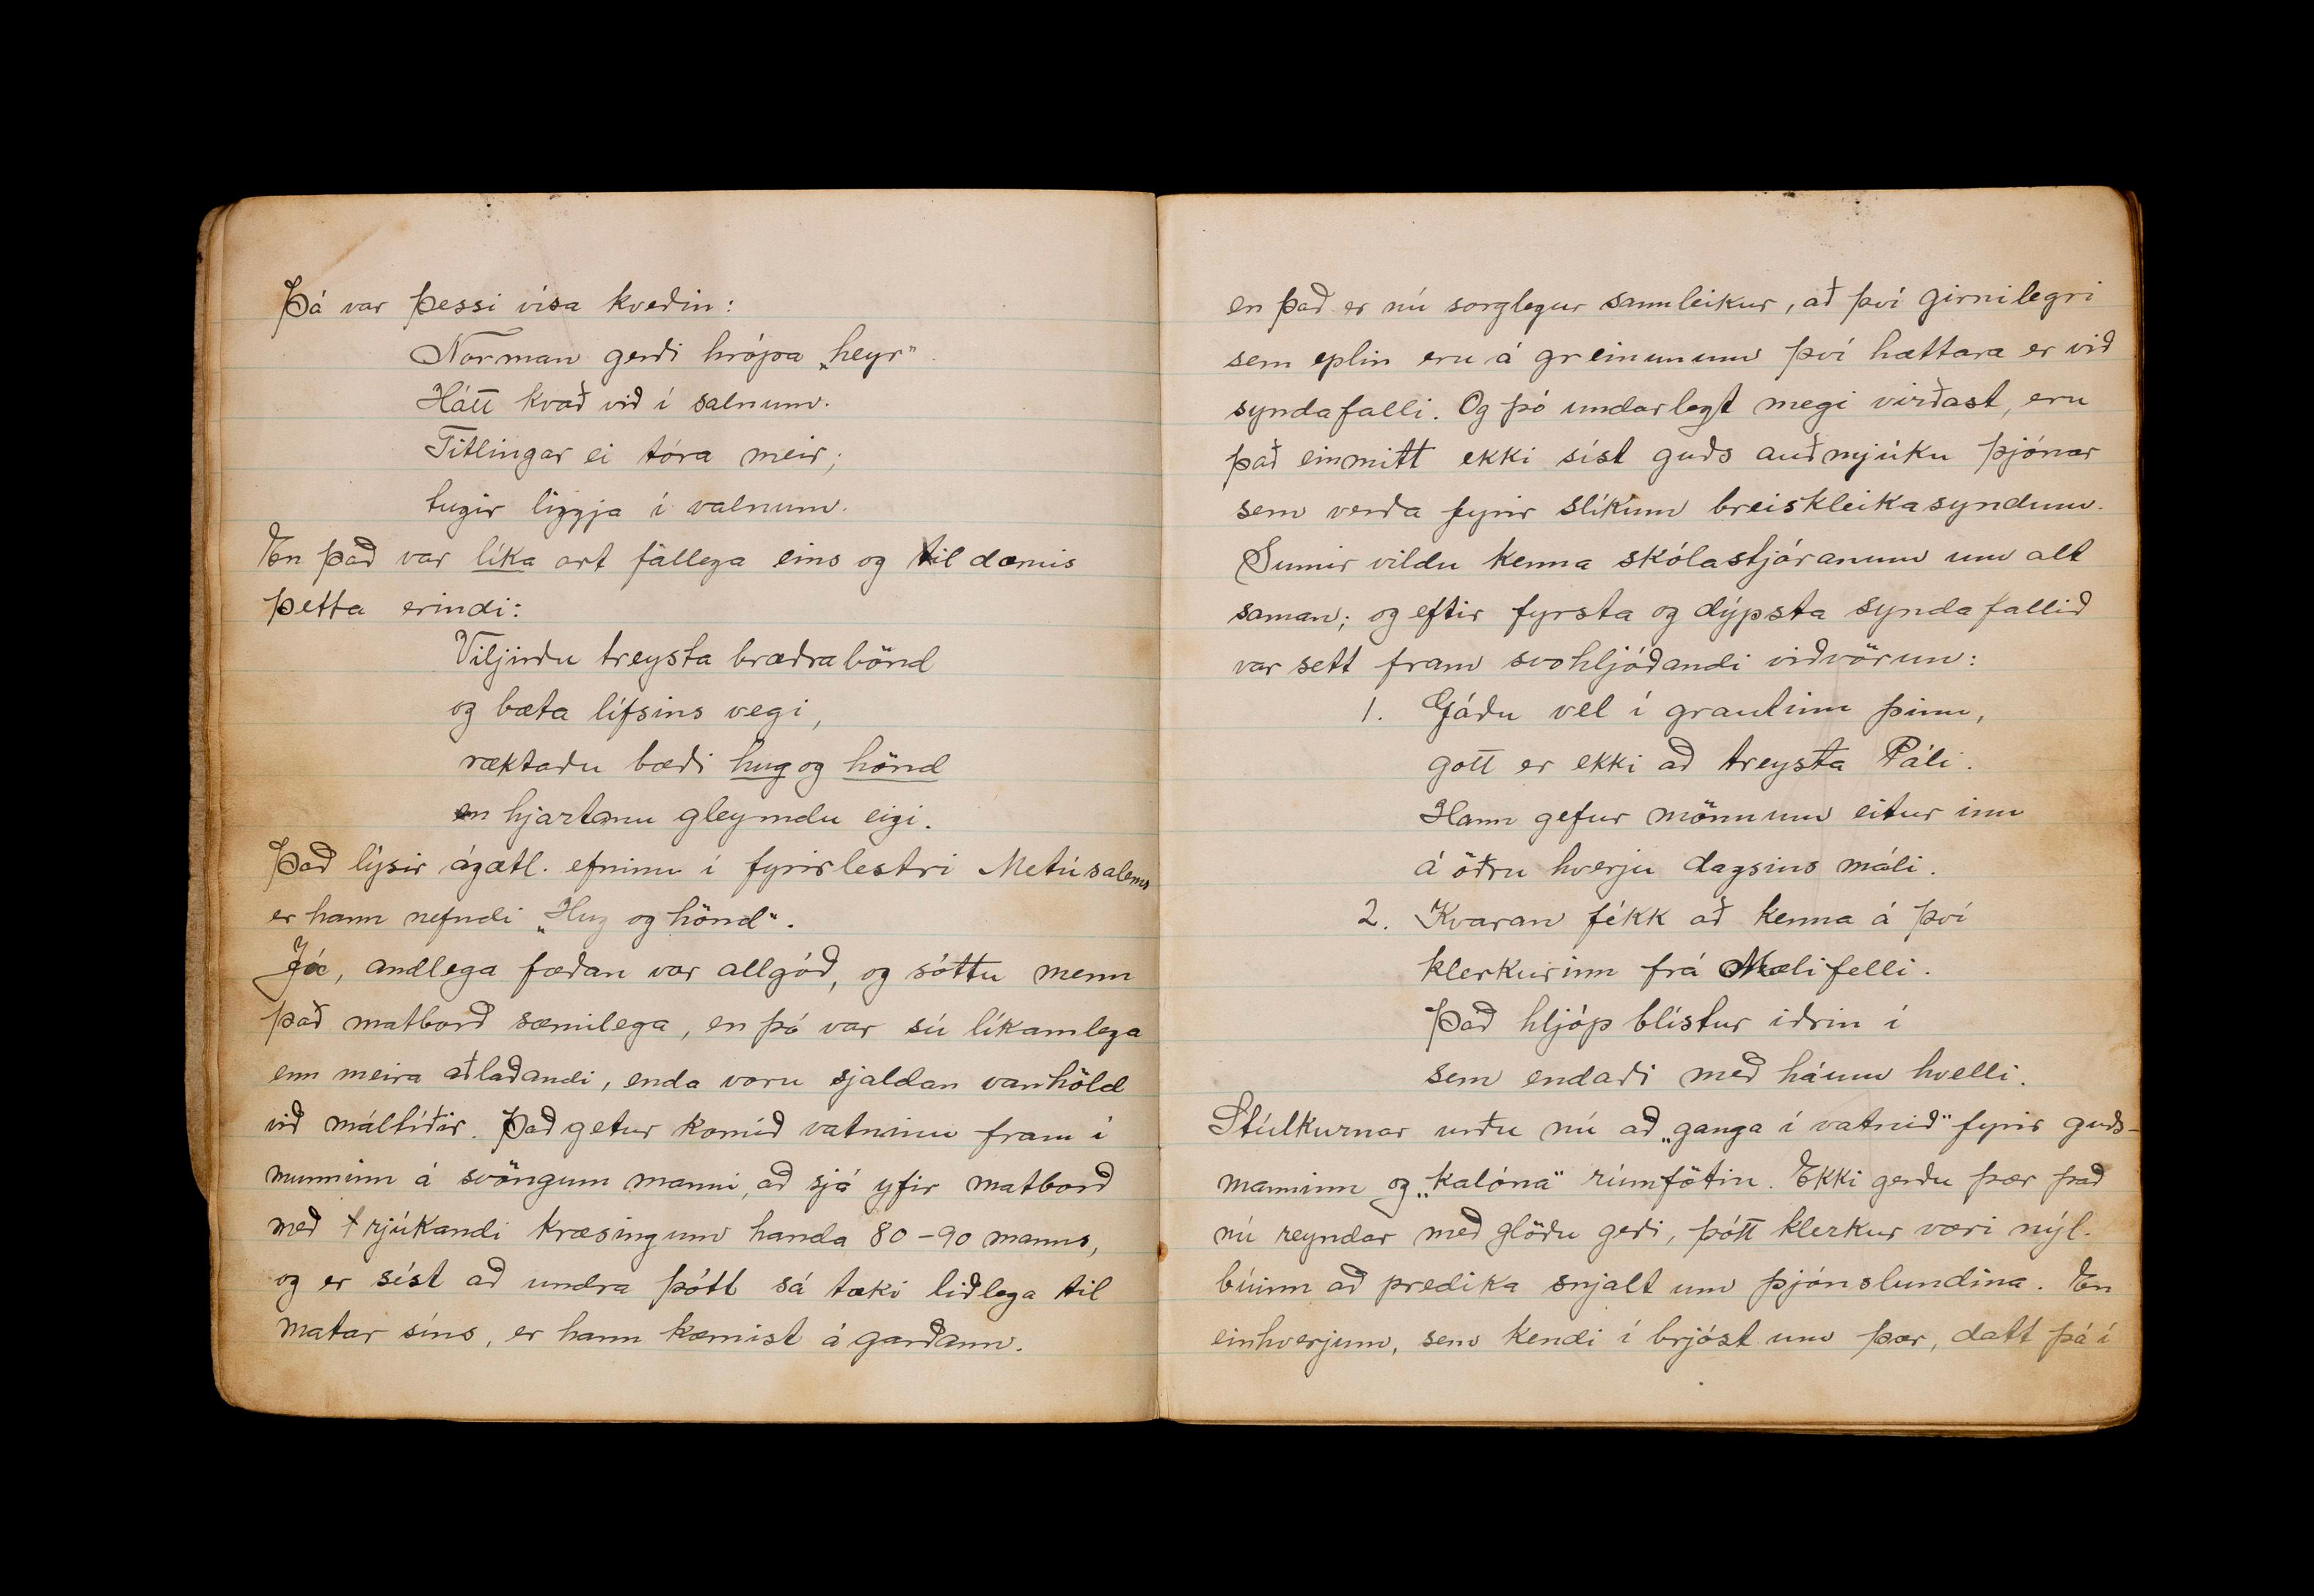 Þá var þessi vísa kveðin:
Norman gerði hrópa „heyr"
Hátt kvað við í salnum.
Titlingar ei tóra meir;
tugir liggja í valnum.
En það var líka ort fallega eins og til dæmis
þetta erindi:
Viljirðu treysta bræðrabönd
og bæta lífsins vegi,
ræktaðu bæði hug og hönd
en hjartanu gleymdu eigi.
Það lýsir ágætl. efninu í fyrirlestri Metúsalems
er hann nefndi „Hug og hönd".
Já, andlega fæðan var allgóð, og sóttu menn
það matborð sæmilega, en þó var sú líkamlega
enn meira aðlaðandi, enda voru sjaldan vanhöld
við máltíðir. Það getur komið vatninu fram í
munninn á svöngum manni, að sjá yfir matborð
með rjúkandi kræsingum handa 80-90 manns,
og er síst að undra þótt sá taki liðlega til
matar síns, er hann kæmist á garðann.
en það er nú sorglegur sannleikur, að því girnilegri
sem eplin eru á greinunum því hættara er við
syndafalli. Og þó undarlegt megi virðast, eru
það einmitt ekki síst guðs auðmjúku þjónar
sem verða fyrir slíkum breiskleikasyndum.
Sumir vildu kenna skólastjóranum um alt
saman; og eftir fyrsta og dýpsta syndafallið
var sett fram svohljóðandi viðvörun:
1. Gáðu vel í grautinn þinn,
gott er ekki að treysta Páli.
Hann gefur mönnum eitur inn
á öðru hverju dagsins máli.
2. Kvaran fékk að kenna á því
klerkurinn frá Mælifelli.
Það hljóp blístur iðrin í
sem endaði með háum hvelli.
Stúlkurnar urðu nú að „ganga í vatnið" fyrir guðs-
manninn og „kalóna" rúmfötin. Ekki gerðu þær það
nú reyndar með glöðu geði, þótt klerkur væri nýl.
búinn að predika snjalt um þjónslundina. En
einhverjum, sem kendi í brjóst um þær, datt þá í